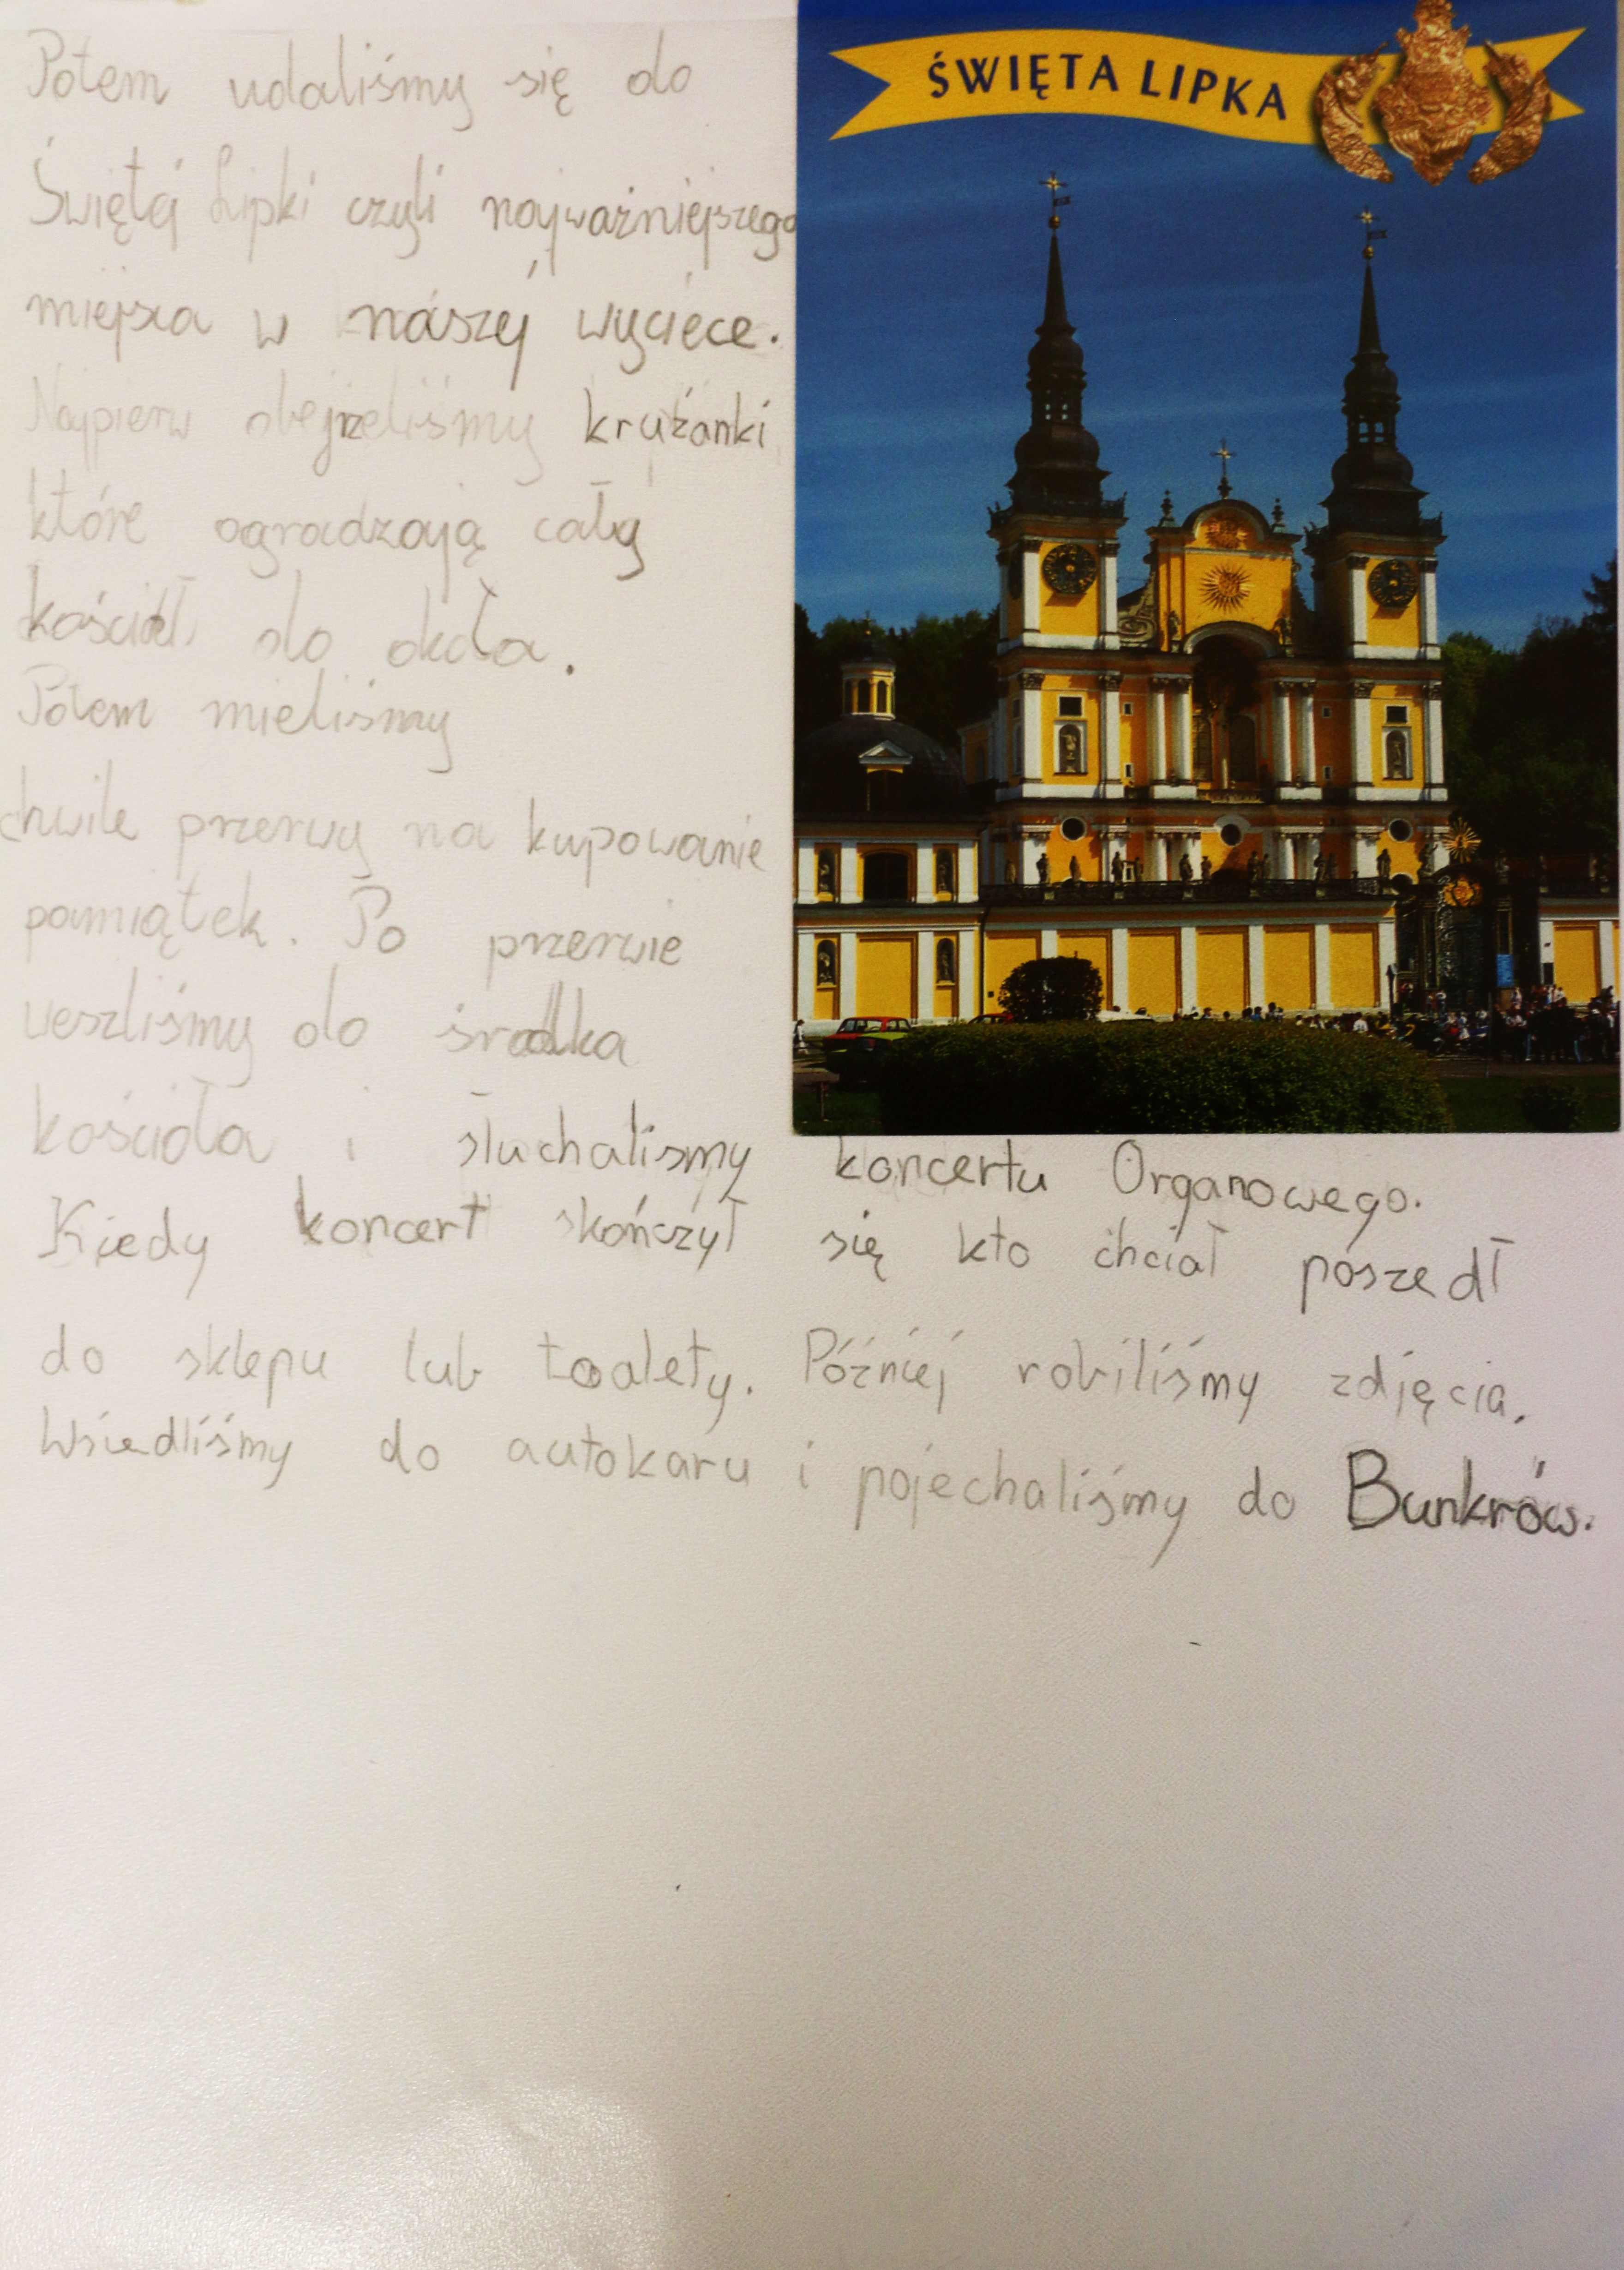 Potem udaliśmy się do
Święta Lipki czyli najważniejszego
miejsca w naszej wyciece.
Najpierw obejrzeliśmy krużanki
które ogradzają cały
kościół do okoła.
Potem mieliśmy
chwile przerwy na kupowanie
pamiątek. Po przerwie
weszliśmy do środka
kościoła i słuchalismy koncertu Organowego.
Kiedy koncert skończył się kto chciał poszedł
do sklepu lub toalety. Później robiliśmy zdjęcia.
Wsiedliśmy do autokaru i pojechaliśmy do Bunkrów.
ŚWIĘTA LIPKA